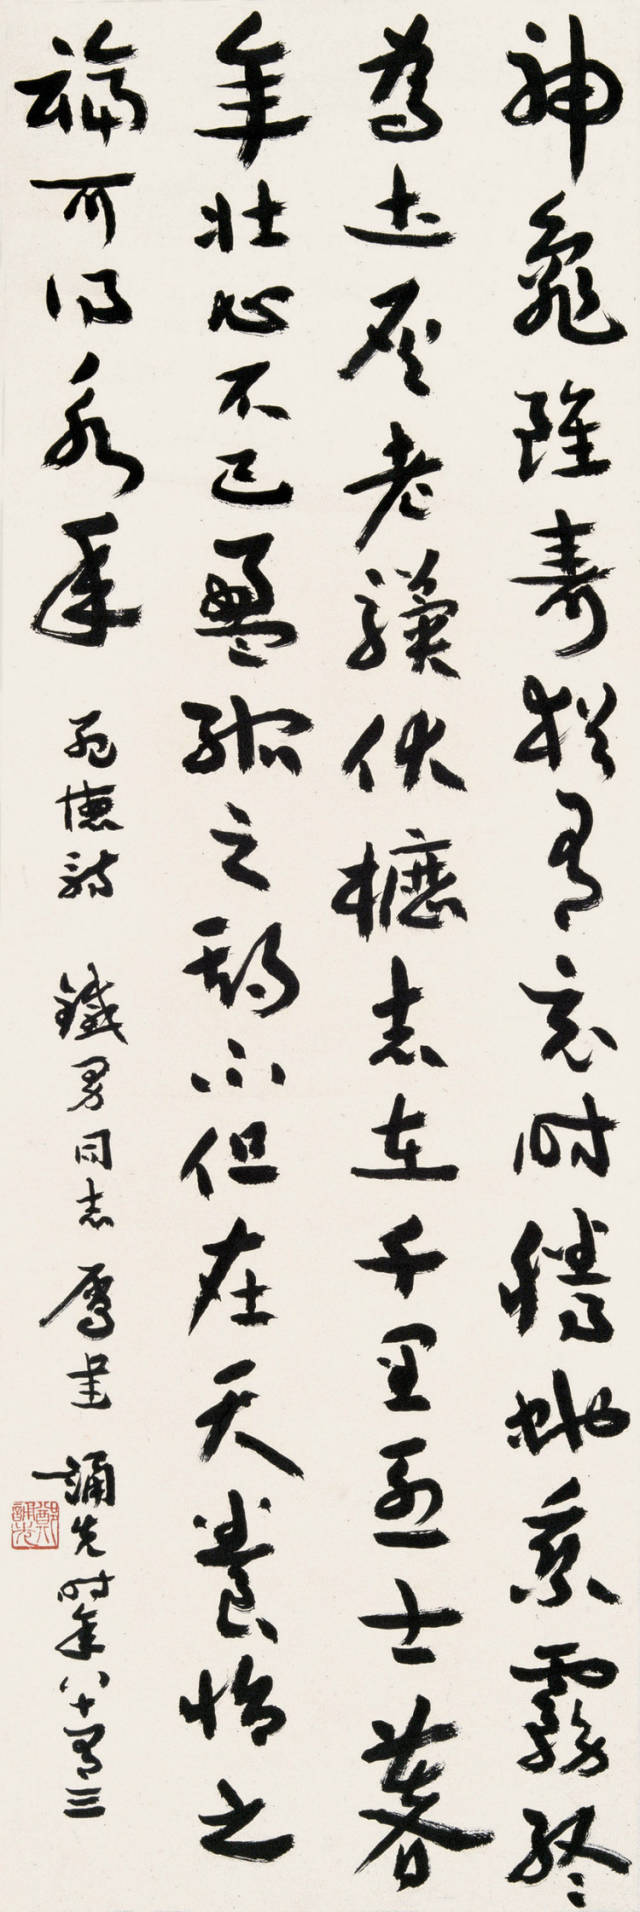 神龜雖壽猶有竟時騰蛇乘霧終
為土灰老驥伏櫪志在千里烈士暮
年壯心不已盈縮之期不但在天養怡之
福可得永年 孟德詩 鐵男同志屬書 誦先時年八十有三
鄭誦先